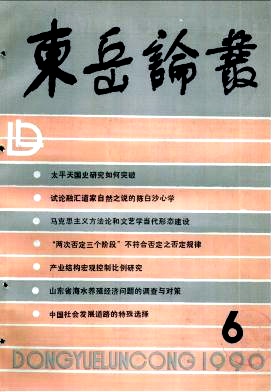 東岳論叢
太平天国史研究如何突破
试论融汇道家自然之说的陈白沙心学
马克思主义方法论和文艺学当代形态建设
“两次否定三个阶段”不符合否定之否定规律
产业结构宏观控制比例研究
山东省海水养殖经济问题的调查与对策
中国社会发展道路的特殊选择
6
DONGYUELUNCONG 1990